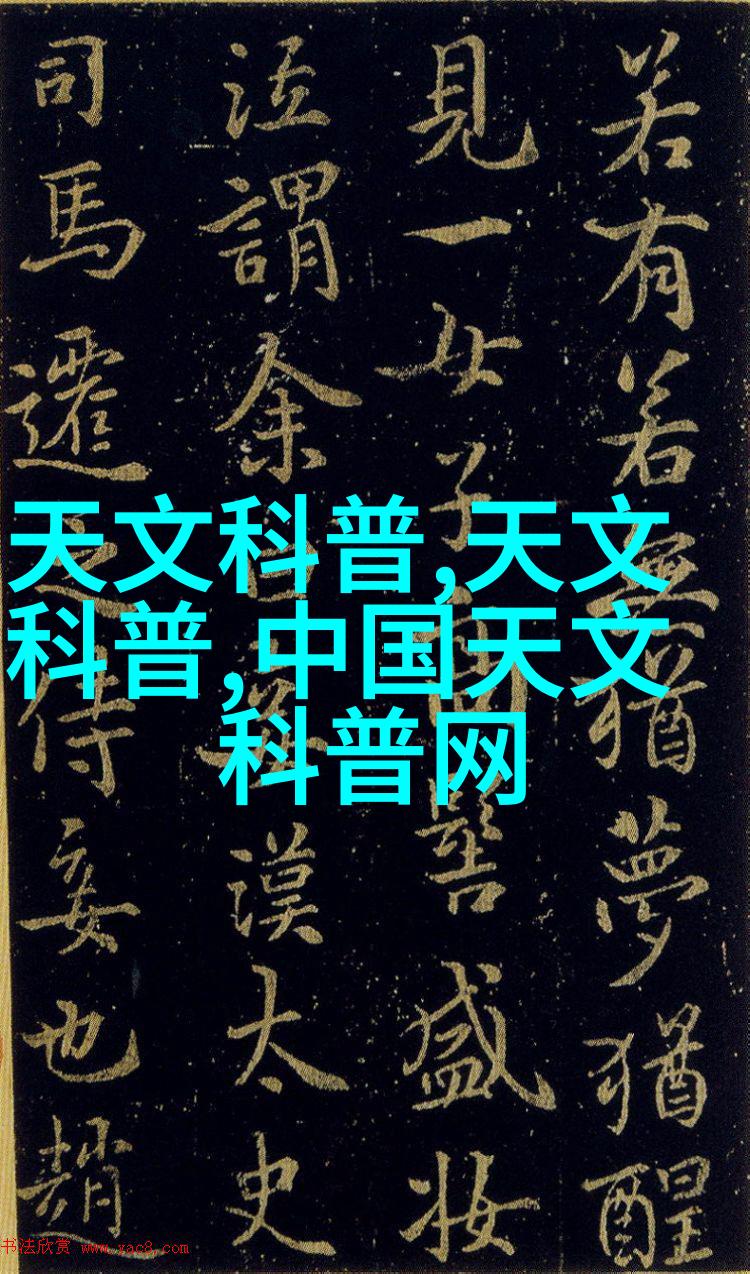 若有若無猶夢猶醒
見一女子高髻盛妝
泣謂余曰妾漢太史
司馬遷之侍妾也趙
天文科普,天文
科普,中国天文
科普网
书法欣赏 www.yac8.com